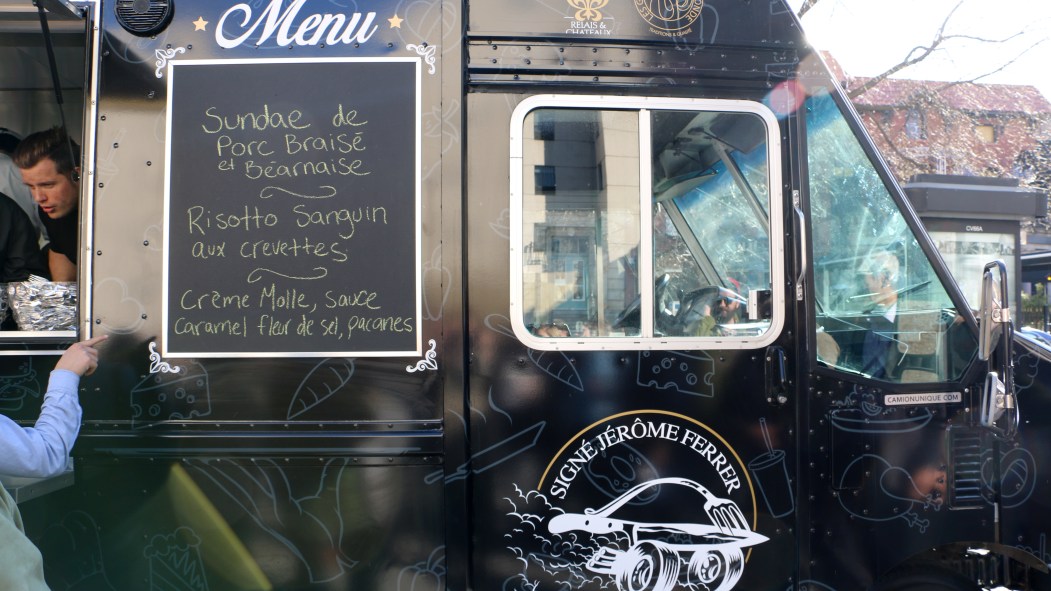 Menu
Sundae de
Porc Braisé
et Béarnaise
Risotto Sanguin
aux crevettes
Crème Molle, sauce
Caramel fleur de sel, pacanes
RELAIS &
CHATEAUX
SIGNÉ JÉRÔME FERRER
CAMIONUNIQUE.COM